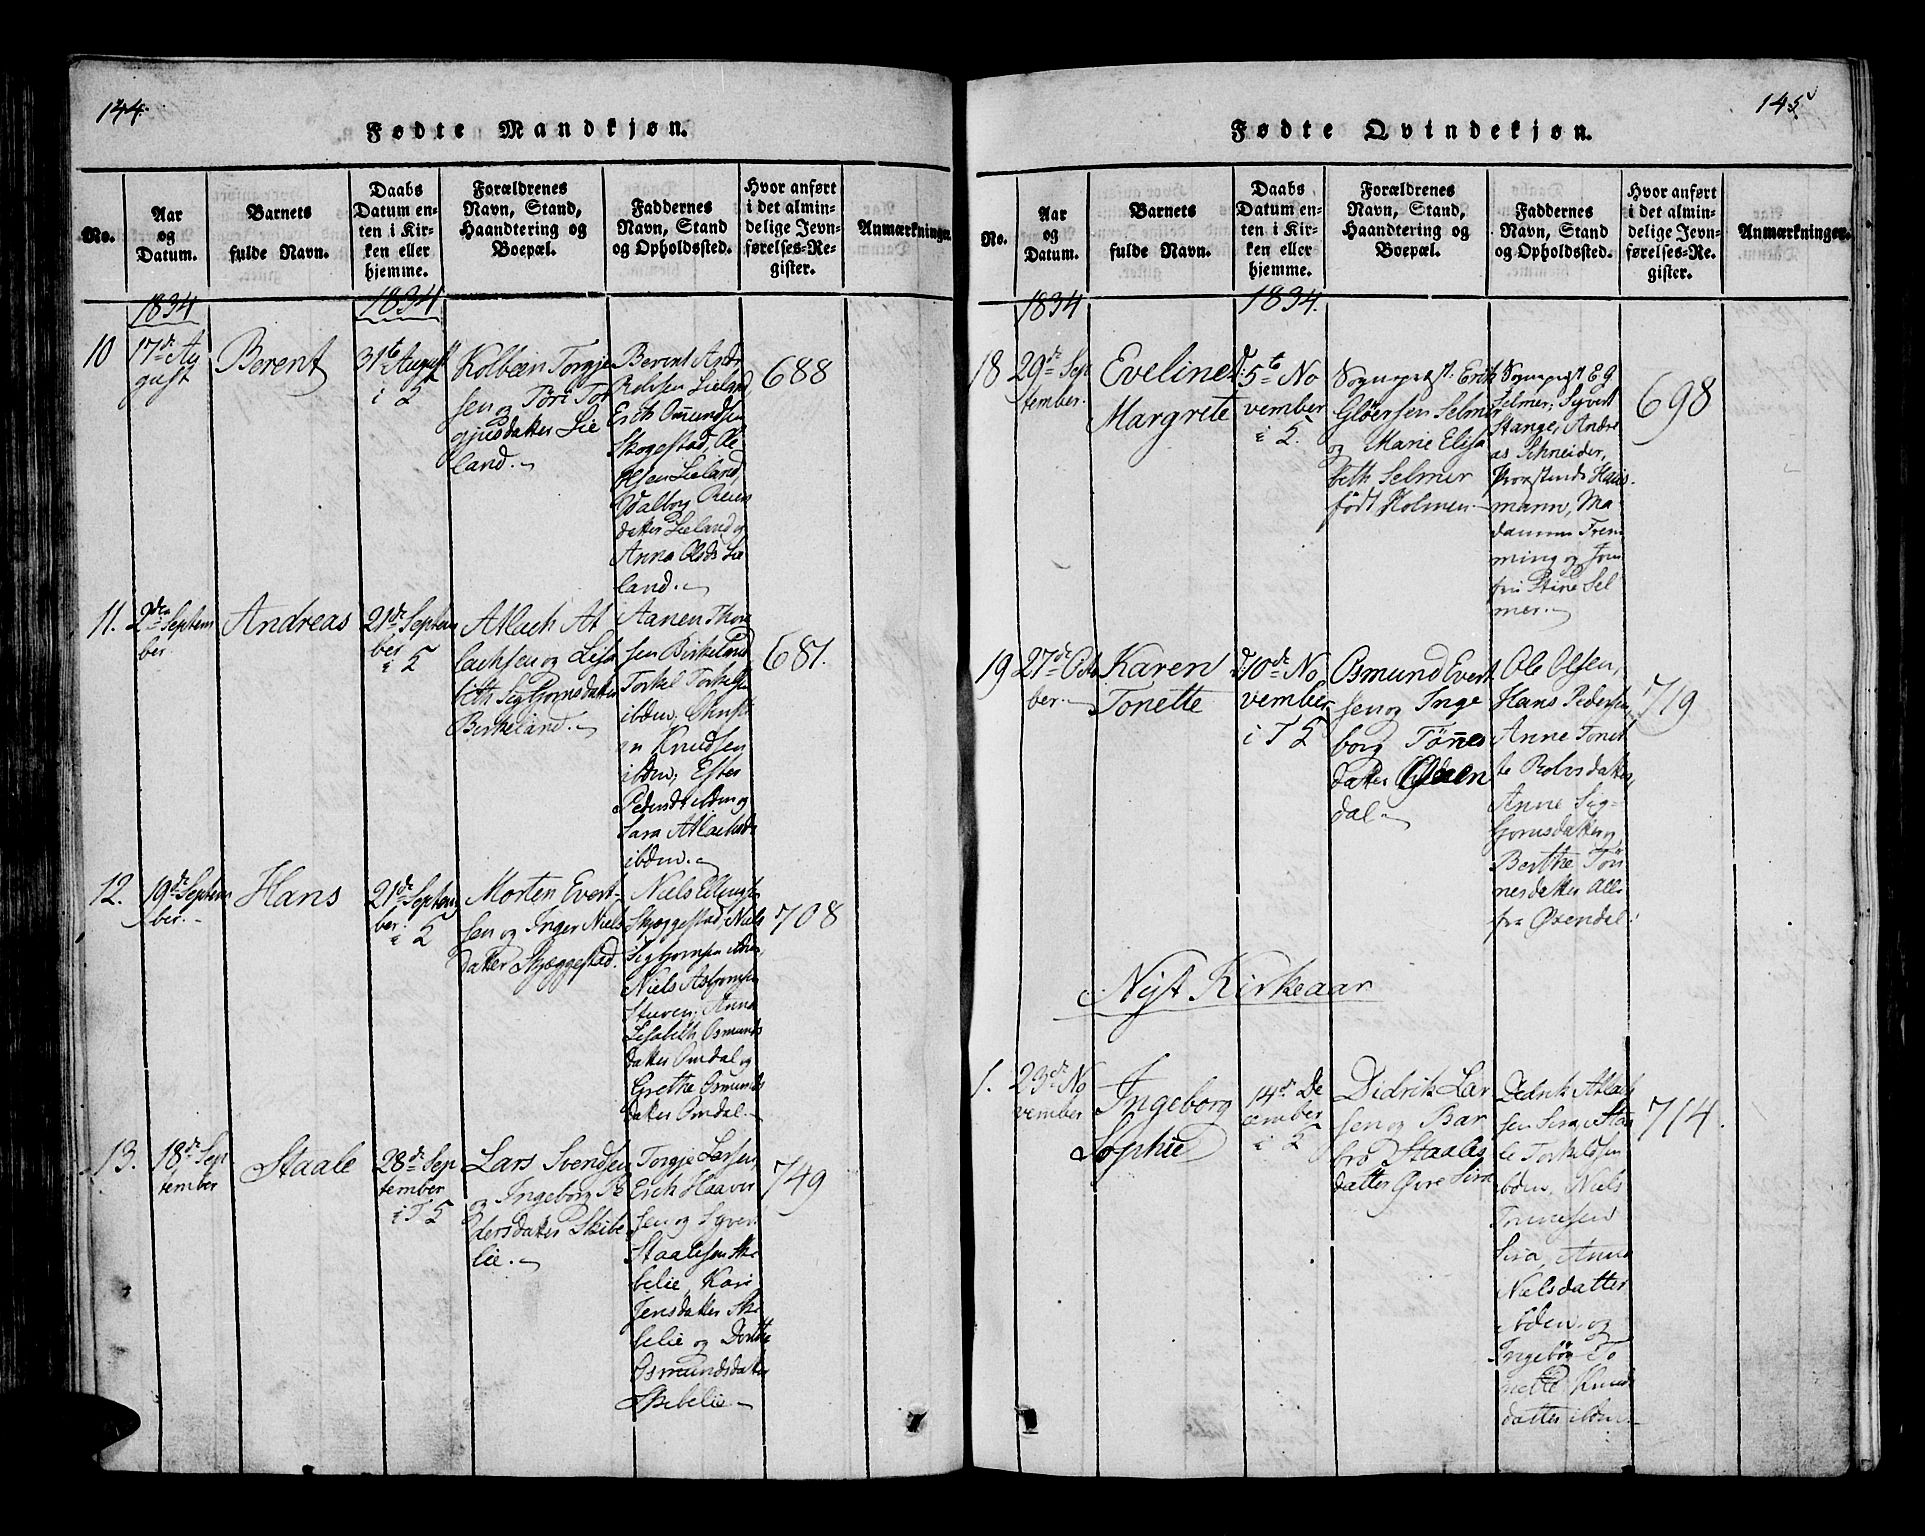 144.
Fødte Mandkjøn.
No.
Aar
og
Datum.
Barnets
fulde Navn.
Daabs
Datum en-
ten i Kir-
ken eller
hjemme.
Forældrenes
Navn, Stand,
Haandtering og
Boepæl.
Faddernes
Navn, Stand
og Opholdssted.
Hvor anført
i det almin-
delige Jevn-
førelses-Re-
gister.
Anmærkninger.
1834
1834
10
17de Au
gust
Berent
31te August
i
Kolbein Torgje
sen og Tori Tor
gjusdatter Lie
land.
Berent Andr
Lieland,
Erich Omundsen
Skogestad, Ole
Olsen Lieland,
Valborg
datter Lieland og
Anna Olsdr Lie
land.
688
11.
2den Septem
ber
Andreas
21de Septem
ber
i
Atlach At
lachsen og Lisa
beth Sigbjørnsdatter
Birkeland.
Aanen Thom
sen Birkeland
Torkel Torkels
ibdm;
Knudsen
ibdm; Ester
Pedersdt ibdm og
Sara Atlachsd
ibdm.
681.
12.
19de Septem
ber.
Hans
21de Septem
ber.
i
Morten Evert-
sen og Inger Niels
datter Skjeggestad.
Niels Ellingsen
Skjeggestad, Niels
Sigbjørnsen
Niels Asbjørnsen
Stuven; Anna
Lisabeth Osmunds
datter Omdal og
Grethe Osmunds
datter Omdal.
708
13.
18de Sep
tember
Staale
28de Sep
tember
i
Lars Svendsen
og Ingeborg Pe
dersdatter Skibe
lie.
Torgje Larsen,
Erich Haaver
sen og Syver
Staalesen Ski
belie, Kari
Jensdatter Ski
belie og Dorthe
Osmundsdatter
Skibelie
749
145
Fødte Qvindekjøn.
No.
Aar
og
Datum.
Barnets
fulde Navn.
Daabs
Datum en-
ten i Kir-
ken eller
hjemme.
Forældrenes
Navn, Stand,
Haandtering og
Boepæl.
Faddernes
Navn, Stand
og Opholdssted.
Hvor anført
i det almin-
delige Jevn-
førelses-Re-
gister.
Anmærkninger.
1834
1834.
18
29de Sep
tember.
Eveline
Margrete
D: 5te No
vember
i
Sognepræst: Erich
Gløersen Selmer
og Marie Elisa
beth Selmer
født Holmen
Sognepræst E G
Selmer; Syvert
Stange; Andre
as Schneider,
Provstinde Haus
mann, Ma
damme Frem
ming og Jom
fru Stine Sel
mer.
698
19
27de Octo
ber.
Karen
Tonette
D: 10de No
vember
i
Osmund Evert
sen og Inge
borg Tönnes
datter Øden
dal
Ole Olsen,
Hans Pedersen,
Anne Tonet
te Rolvsdatter,
Anne Sig-
bjørnsdatter og
Berthe Tön
nesdatter Alle
fra Øsendal
719
Nyt Kirkeaar
1.
23de No
vember
Ingeborg
Sophie
14de De
cember
i
Didrik Lar
sen og Bar
bro Staales
datter Øvre Sira
Didrik Atlak
sen Sira, Staa
le Torkildsen
ibdm, Niels
Tønnesen
Sira, Anna
Nielsdatter
ibdem og
Ingebör To
nette Knuds
datter ibdm.
714